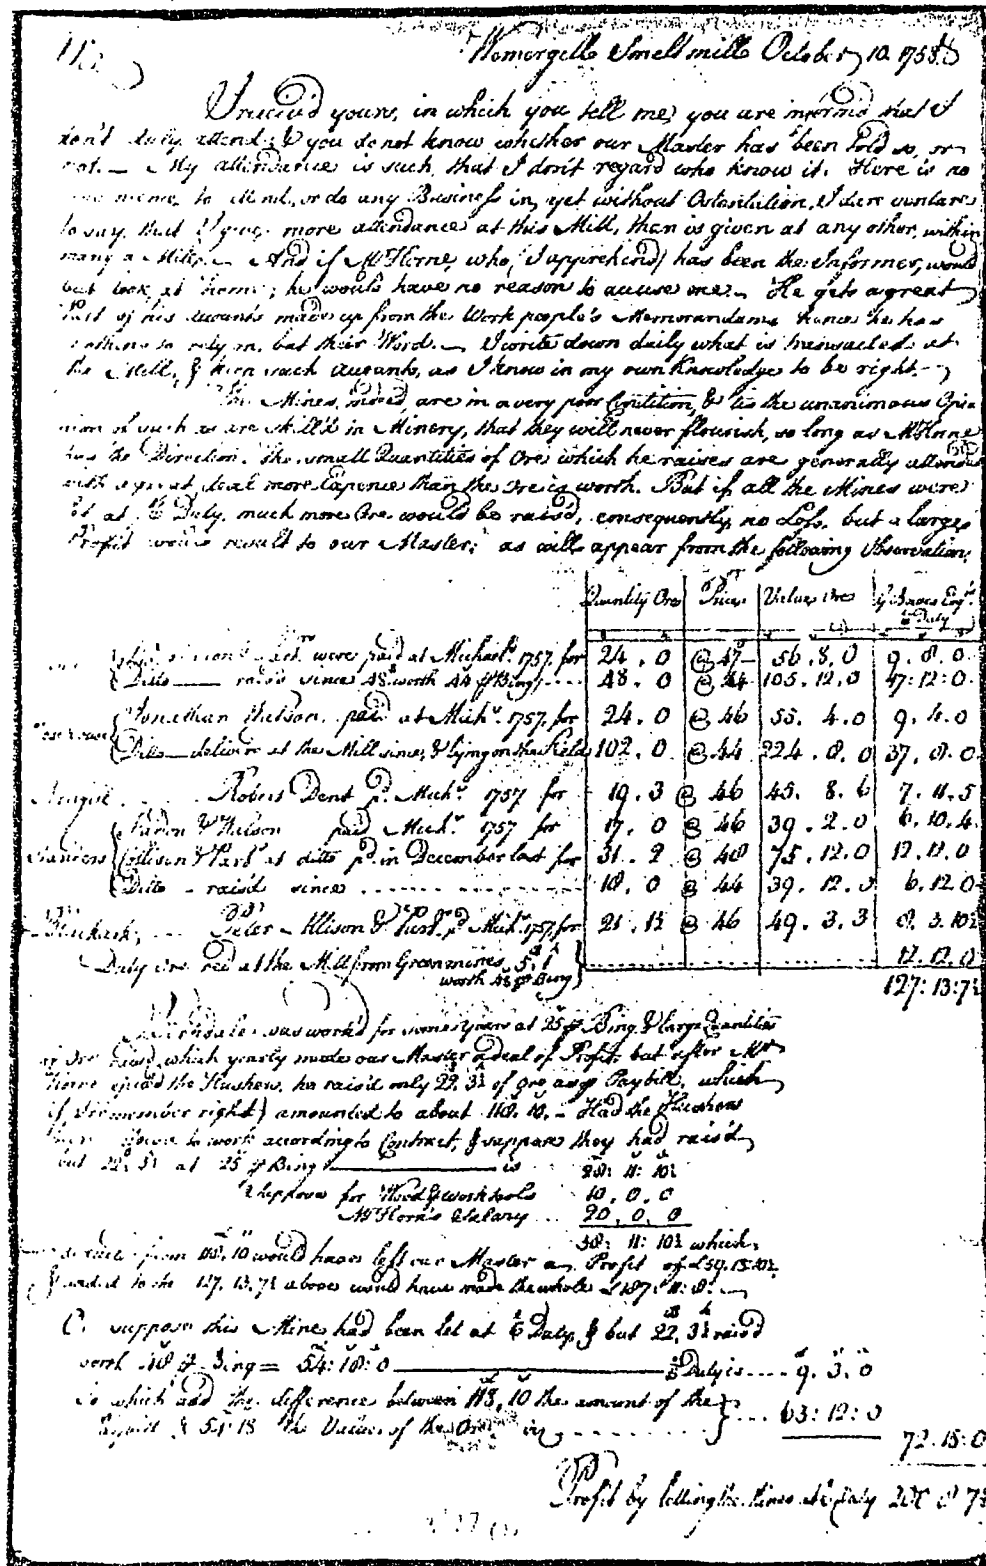 Wemergill Smeltmill October 10. 1758
I receiv'd yours, in which you tell me you are inform'd that I
don't duly attend; & you do not know whether our Master has been told so, or
not. — My attendance is such, that I don't regard who know it. Here is no
to attend, or do any Business in, yet without Ostentation, I dare venture
to say, that I give more attendance at this Mill, than is given at any other, within
many a Mile. — And if Mr Horne, who (I apprehend) has been the Informer, would
but look at home; he would have no reason to accuse me. — He gets a great
Part of his Accounts made up from the Work people's Memorandums hence he has
nothing to rely on, but their Word. — I write down daily what is transacted at
the Mill, & keep such Accounts, as I know in my own Knowledge to be right. —
The Mines, indeed, are in a very poor Condition, & 'tis the unanimous Opi-
nion of such as are skill'd in Minery, that they will never flourish, so long as Mr Horne
has the Direction. The small Quantities of Ore which he raises are generally attended
with a great deal more Expence than the Ore is worth. But if all the Mines were
let at 1/6 Duty, much more Ore would be rais'd, consequently, no Loss, but a large
Profit would result to our Master; as will appear from the following Observation.
Quantity Ore Price Value Ore Esqr. 1/6 Duty
were paid at Michaels. 1757. for 24 . 0 @ 47 56 . 8 . 0 9 . 8 . 0
Ditto — rais'd since worth 44 p Bing 48 . 0 @ 44 105 . 12 . 0 17 : 12 : 0
Jonathan Watson paid at Michs. 1757. for 24 . 0 @ 46 55 . 4 . 0 9 . 4 . 0
Ditto — deliver'd at the Mill since, & lying on the Field 102 . 0 @ 44 224 . 8 . 0 37 . 8 . 0
Robert Dent pd. Michs. 1757 for 19 . 3 @ 46 45 . 8 . 6 7 . 11 . 5
Watson paid Michs. 1757 for 17 . 0 @ 46 39 . 2 . 0 6 . 10 . 4
Collison & Partrs at ditto pd. in December last for 31 . 2 @ 48 75 . 12 . 0 12 . 12 . 0
Ditto - rais'd since 18 . 0 @ 44 39 . 12 . 0 6 . 12 . 0
Peter Allison & Partrs. pd Michs. 1757. for 21 . 1½ @ 46 49 . 3 . 3 8 . 3 . 10½
Duty Ore recd at the Mill from Greenmines 5 . 1 12 . 12 . 0
worth 48 p Bing
127 : 13 : 7½
was work'd for some years at 25 p Bing, & large Quantities
of Ore rais'd, which yearly made our Master a deal of Profit, but after Mr
Horne open'd the Hushes, he rais'd only 22. 3½ of Ore as p Paybill, which
(if I remember right) amounted to about 118. 10. — Had the Hushes
been to work according to Contract, & suppose they had rais'd
but 22. 3½ at 25 p Bing — is 28 : 11 : 10½
I suppose for Wood & worktools 10 . 0 . 0
Mr Horn's Salary 20 . 0 . 0
58 : 11 : 10½ which
from 118. 10 would have left our Master a Profit of £59. 18. 10½
& added to the 127. 13. 7½ above would have made the whole £187 : 11 : 8.
suppose this Mine had been let at 1/6 Duty, & but 22. 3½ rais'd
worth 48 p Bing = 54 : 18 : 0 — 1/6 Duty is 9 . 3 . 0
to which add the difference between 118. 10 the amount of the 63 : 12 : 0
Paybill & 54 : 18 the Value of the Ore
72 . 15 : 0
Profit by letting the Mines at 1/6 Duty 200 8 7½